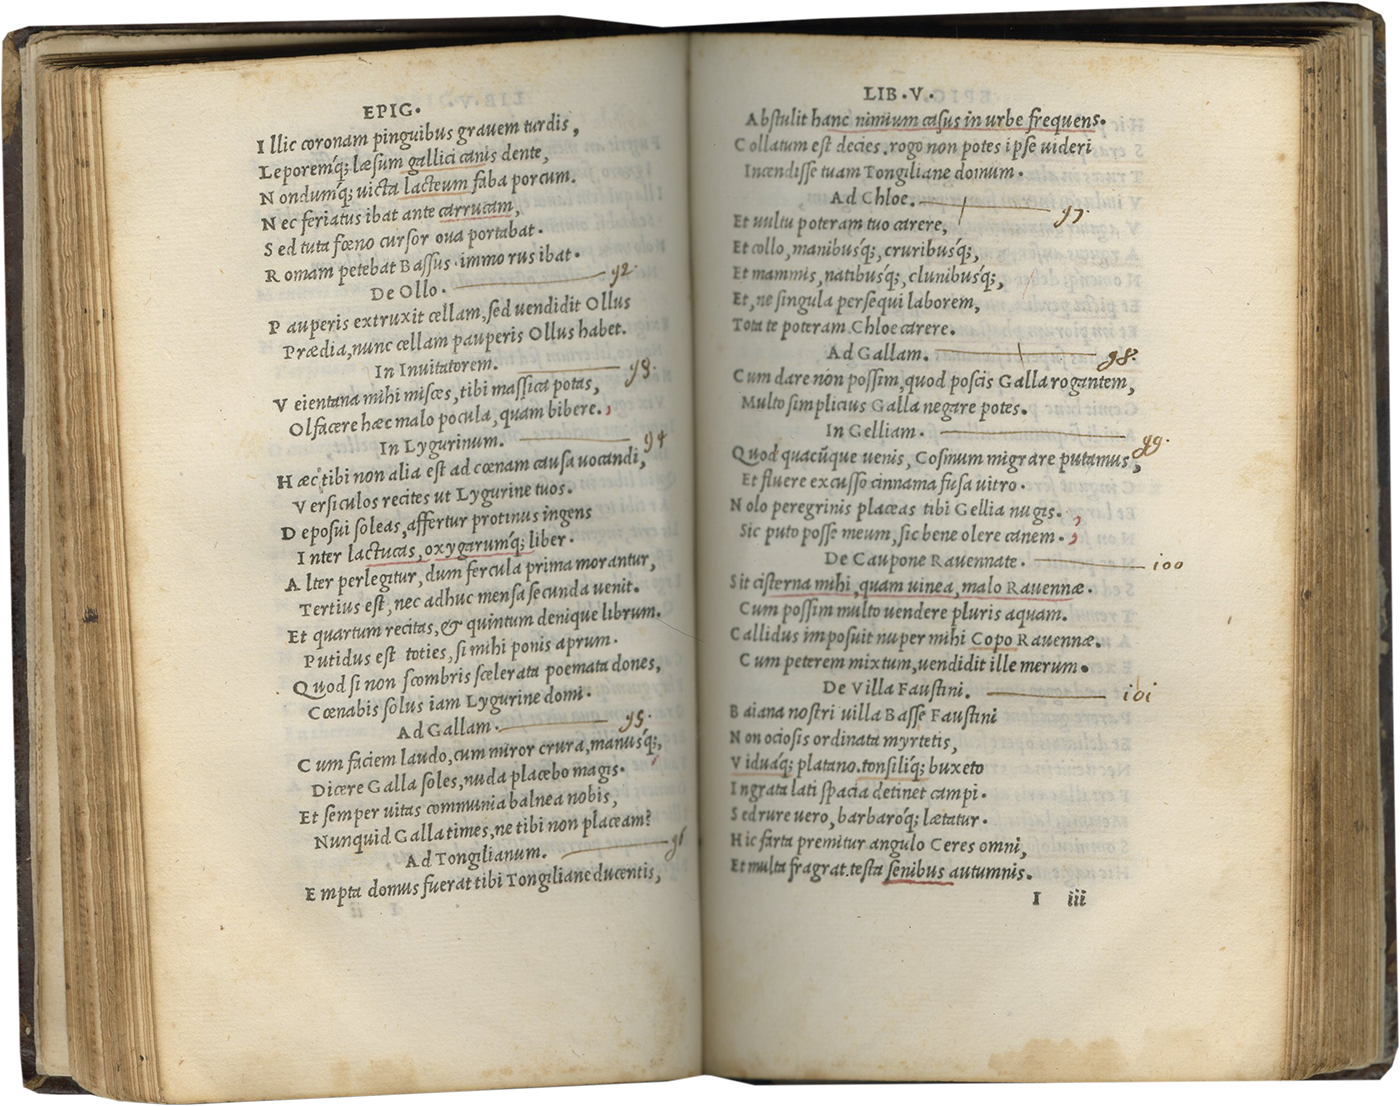 EPIG.
Illic coronam pinguibus grauem turdis,
Leporemq́; læsum gallici canis dente,
Nondumq́; uicta lacteum faba porcum.
Nec feriatus ibat ante carrucam,
Sed tuta fœno cursor oua portabat.
Romam petebat Bassus.immo rus ibat.
De Ollo. 92.
Pauperis extruxit cellam, sed uendidit Ollus
Prædia, nunc cellam pauperis Ollus habet.
In Inuitatorem. 93.
Veientana mihi misces, tibi massica potas,
Olfacere hæc malo pocula, quam bibere.
In Lygurinum. 94
Hæc tibi non alia est ad cœnam causa uocandi,
Versiculos recites ut Lygurine tuos.
Deposui soleas, affertur protinus ingens
Inter lactucas, oxygarumq́; liber.
Alter perlegitur, dum fercula prima morantur,
Tertius est, nec adhuc mensa secunda uenit.
Et quartum recitas, & quintum denique librum.
Putidus est toties, si mihi ponis aprum.
Quod si non scombris scelerata poemata dones,
Cœnabis solus iam Lygurine domi.
Ad Gallam. 95.
Cum faciem laudo, cum miror crura, manusq́;,
Dicere Galla soles, nuda placebo magis.
Et semper uitas communia balnea nobis,
Nunquid Galla times, ne tibi non placeam?
Ad Tongilianum. 96
Empta domus fuerat tibi Tongiliane ducentis,
LIB.V.
Abstulit hanc nimium casus in urbe frequens.
Collatum est decies. rogo non potes ipse uideri
Incendisse tuam Tongiliane domum.
Ad Chloe. 97.
Et uultu poteram tuo carere,
Et collo, manibusq́;, cruribusq́;,
Et mammis, natibusq́;, clunibusq́;,
Et, ne singula persequi laborem,
Tota te poteram Chloe carere.
Ad Gallam. 98.
Cum dare non possim, quod poscis Galla rogantem,
Multo simplicius Galla negare potes.
In Gelliam. 99.
Quod quacũque uenis, Cosmum migrare putamus,
Et fluere excusso cinnama fusa uitro.
Nolo peregrinis placeas tibi Gellia nugis.
Sic puto posse meum, sic bene olere canem.
De Caupone Rauennate. 100
Sit cisterna mihi, quam uinea, malo Rauennæ.
Cum possim multo uendere pluris aquam.
Callidus imposuit nuper mihi Copo Rauennæ.
Cum peterem mixtum, uendidit ille merum.
De Villa Faustini. 101
Baiana nostri uilla Basse Faustini
Non ociosis ordinata myrtetis,
Viduaq́; platano.tonsiliq́; buxeto
Ingrata lati spacia detinet campi.
Sed rure uero, barbaroq́; lætatur.
Hic farta premitur angulo Ceres omni,
Et multa fragrat.testa senibus autumnis.
I iii